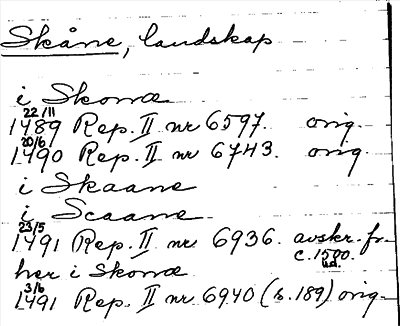 Skåne, landskap
i Skonæ
22/11
1489 Rep. II nr 6597. orig.
20/6
1490 Rep. II nr 6743. orig.
i Skaane
i Scaane
23/5
1491 Rep. II nr 6936. avskr. fr.
c. 1500.
her i Skonæ
3/6
1491 Rep. II nr 6940 (s. 189) orig.